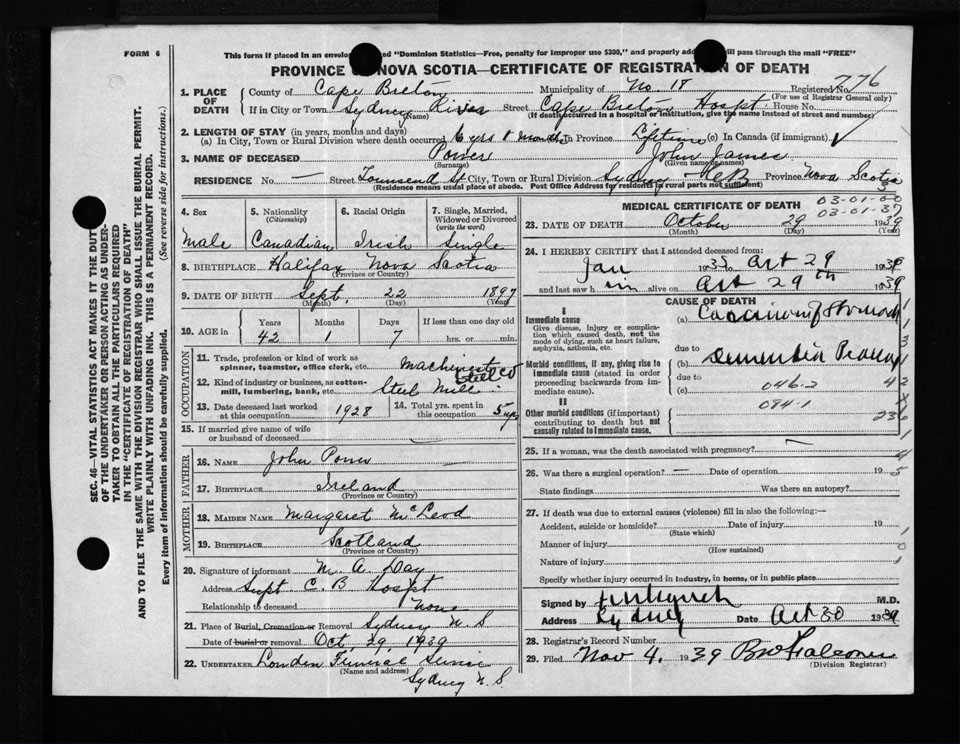 FORM 6
This form if placed in an envelope "Dominion Statistics—Free, penalty for improper use $300," and properly will pass through the mail "FREE"
PROVINCE OF NOVA SCOTIA—CERTIFICATE OF REGISTRATION OF DEATH
776
1. PLACE OF DEATH County of Cape Breton Municipality of No. 18 Registered No.
(For use of Registrar General only)
If in City or Town Sydney River Street Cape Breton Hospt House No.
(Name) (If death occurred in a hospital or institution, give the name instead of street and number)
2. LENGTH OF STAY (in years, months and days)
(a) In City, Town or Rural Division where death occurred 6 yrs 8 months In Province Lifetime (c) In Canada (if immigrant) ✓
3. NAME OF DECEASED Power John James
(Surname) (Given name or names)
RESIDENCE No. — Street Townsend St City, Town or Rural Division Sydney Province Nova Scotia
(Residence means usual place of abode. Post Office Address for residents in rural parts not sufficient)
4. Sex 5. Nationality (Citizenship) 6. Racial Origin 7. Single, Married, Widowed or Divorced (write the word)
Male Canadian Irish Single
8. BIRTHPLACE Halifax Nova Scotia
(Province or Country)
9. DATE OF BIRTH Sept. 22 1897
(Month) (Day) (Year)
10. AGE in Years Months Days If less than one day old
42 1 7 hrs. or min.
OCCUPATION
11. Trade, profession or kind of work as spinner, teamster, office clerk, etc. Machinist
12. Kind of industry or business, as cotton-mill, lumbering, bank, etc. Steel Co Steel Mill
13. Date deceased last worked at this occupation 1928 14. Total yrs. spent in this occupation 5 yrs
15. If married give name of wife or husband of deceased
FATHER
16. NAME John Power
17. BIRTHPLACE Ireland
(Province or Country)
MOTHER
18. MAIDEN NAME Margaret McLeod
19. BIRTHPLACE Scotland
(Province or Country)
20. Signature of informant M. A. Day
Address Supt C. B Hospt
Relationship to deceased None
21. Place of Burial, Cremation or Removal Sydney N S
Date of burial or removal Oct, 29, 1939
22. UNDERTAKER Funeral
(Name and address)
Sydney N. S.
MEDICAL CERTIFICATE OF DEATH
03-01-00
03-01-37
23. DATE OF DEATH October 29 1939
(Month) (Day) (Year)
24. I HEREBY CERTIFY that I attended deceased from:
Jan 1935 Oct 29 1939
and last saw him alive on Oct 29th 1939
CAUSE OF DEATH
I
Immediate cause (a) Carcinoma of Stomach
Give disease, injury or complication which caused death, not the mode of dying, such as heart failure, asphyxia, asthenia, etc.
due to
Morbid conditions, if any, giving rise to immediate cause (stated in order proceeding backwards from immediate cause). (b) Dementia Praecox
due to
(c) 046.2
II 084.1
Other morbid conditions (if important) contributing to death but not causally related to immediate cause.
25. If a woman, was the death associated with pregnancy?
26. Was there a surgical operation? — Date of operation 19
State findings Was there an autopsy?
27. If death was due to external causes (violence) fill in also the following:—
Accident, suicide or homicide? Date of injury 19
(State which)
Manner of injury
(How sustained)
Nature of injury
Specify whether injury occurred in industry, in home, or in public place
Signed by M.D.
Address Sydney Date Oct 30 1939
28. Registrar's Record Number
29. Filed Nov 4, 1939
(Division Registrar)
SEC. 46—VITAL STATISTICS ACT MAKES IT THE DUTY
OF THE UNDERTAKER OR PERSON ACTING AS UNDER-
TAKER TO OBTAIN ALL THE PARTICULARS REQUIRED
IN THE "CERTIFICATE OF REGISTRATION OF DEATH"
AND TO FILE THE SAME WITH THE DIVISION REGISTRAR WHO SHALL ISSUE THE BURIAL PERMIT.
WRITE PLAINLY WITH UNFADING INK. THIS IS A PERMANENT RECORD.
Every item of information should be carefully supplied. (See reverse side for instructions.)